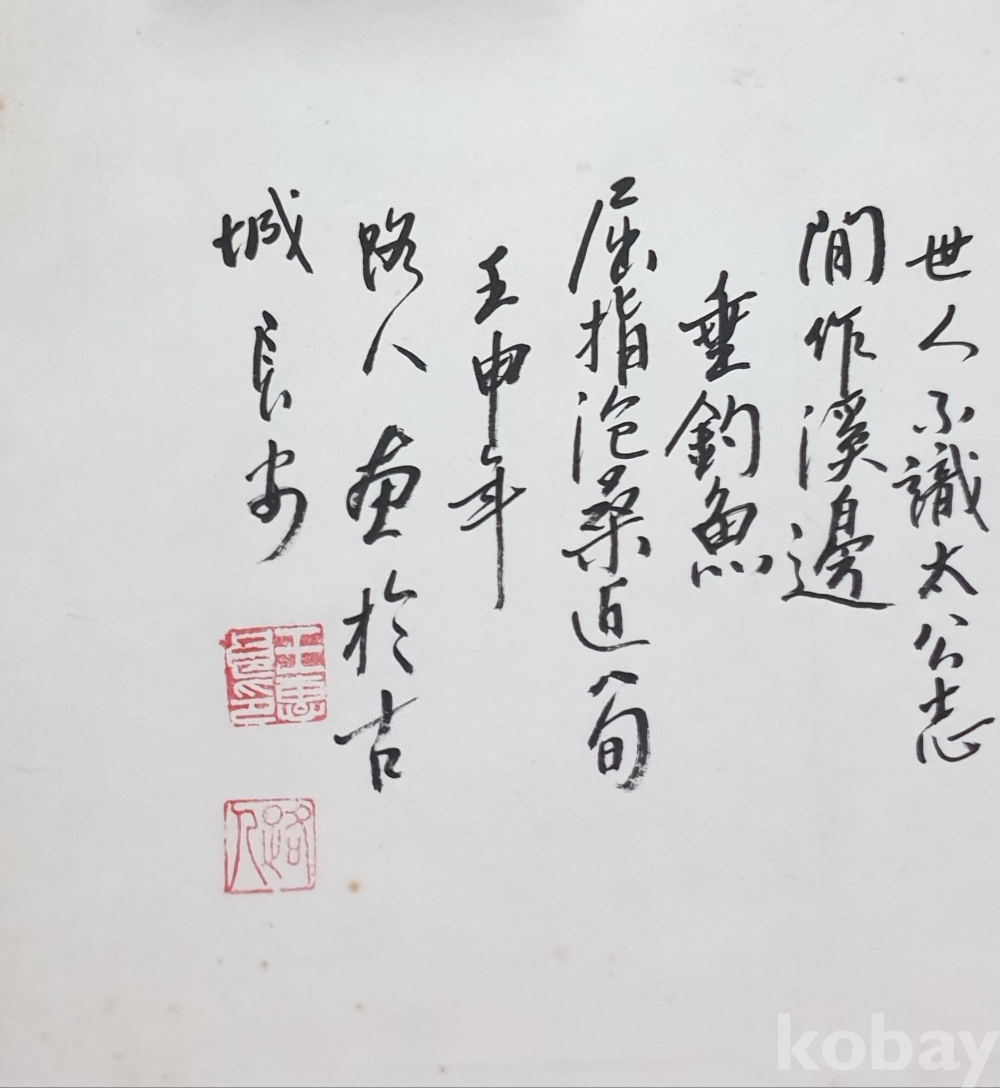 世人不識太公志
間作溪邊
垂釣魚
屈指滄桑近八旬
壬申年
路人畫於古
城長安
路人
kobay